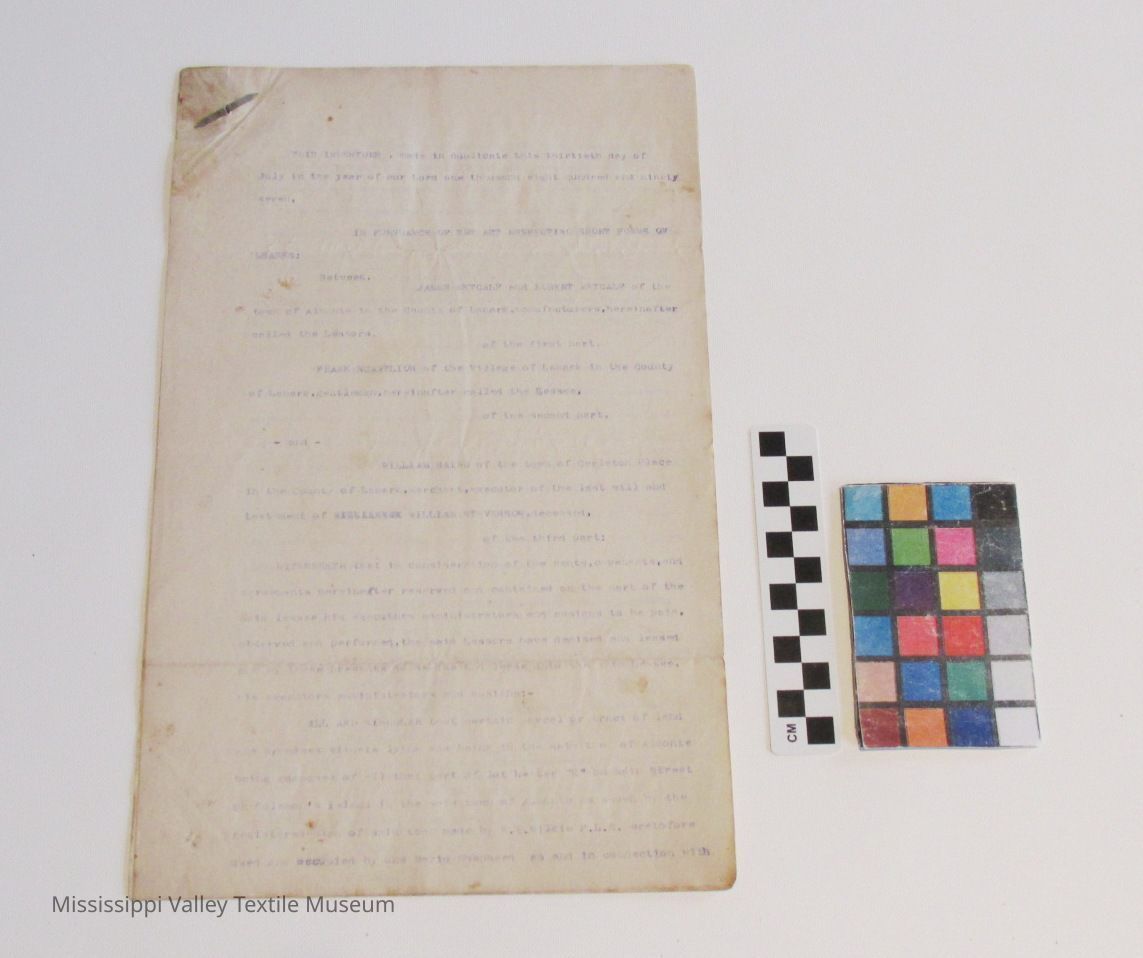 THIS INDENTURE , made in duplicate this thirtieth day of
July in the year of our Lord one thousand eight hundred and ninety
seven,
IN PURSUANCE OF THE ACT RESPECTING SHORT FORMS OF
LEASES:
Between.
JAMES METCALF and ROBERT METCALF of the
town of Almonte in the County of Lanark,manufacturers,hereinafter
called the Lessors.
of the first part.
FRANK of the Village of Lanark in the County
of Lanark,gentleman,hereinafter called the Lessee,
of the second part.
- and -
WILLIAM BAIRD of the town of Carleton Place
in the County of Lanark,merchant,executor of the last will and
testament of WILLIAM STEVENSON,deceased,
of the third part:
WITNESSETH that in consideration of the rents,covenants,and
agreements hereinafter reserved and contained on the part of the
said lessee his executors administrators and assigns to be paid,
observed and performed,the said Lessors have demised and leased
his executors administrators and assigns:-
ALL AND SINGULAR that certain parcel or tract of land
and premises situate lying and being in the of Almonte
being composed of part of lot on Main Street
on Coleman's Island in the said town of Almonte as shown by the
of said town made by P.L.S. heretofore
used and occupied by one as and in connection with
CM
Mississippi Valley Textile Museum